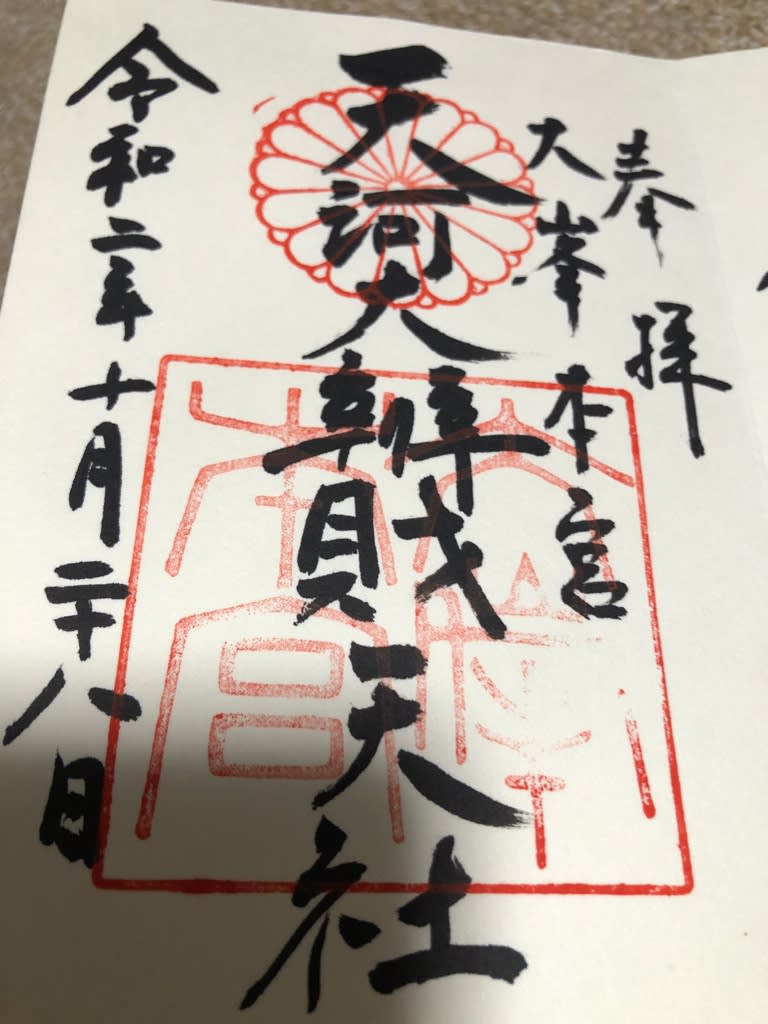 奉拝
大峯本宮
天河大辨財天社
令和二年十月二十八日
大峯本宮